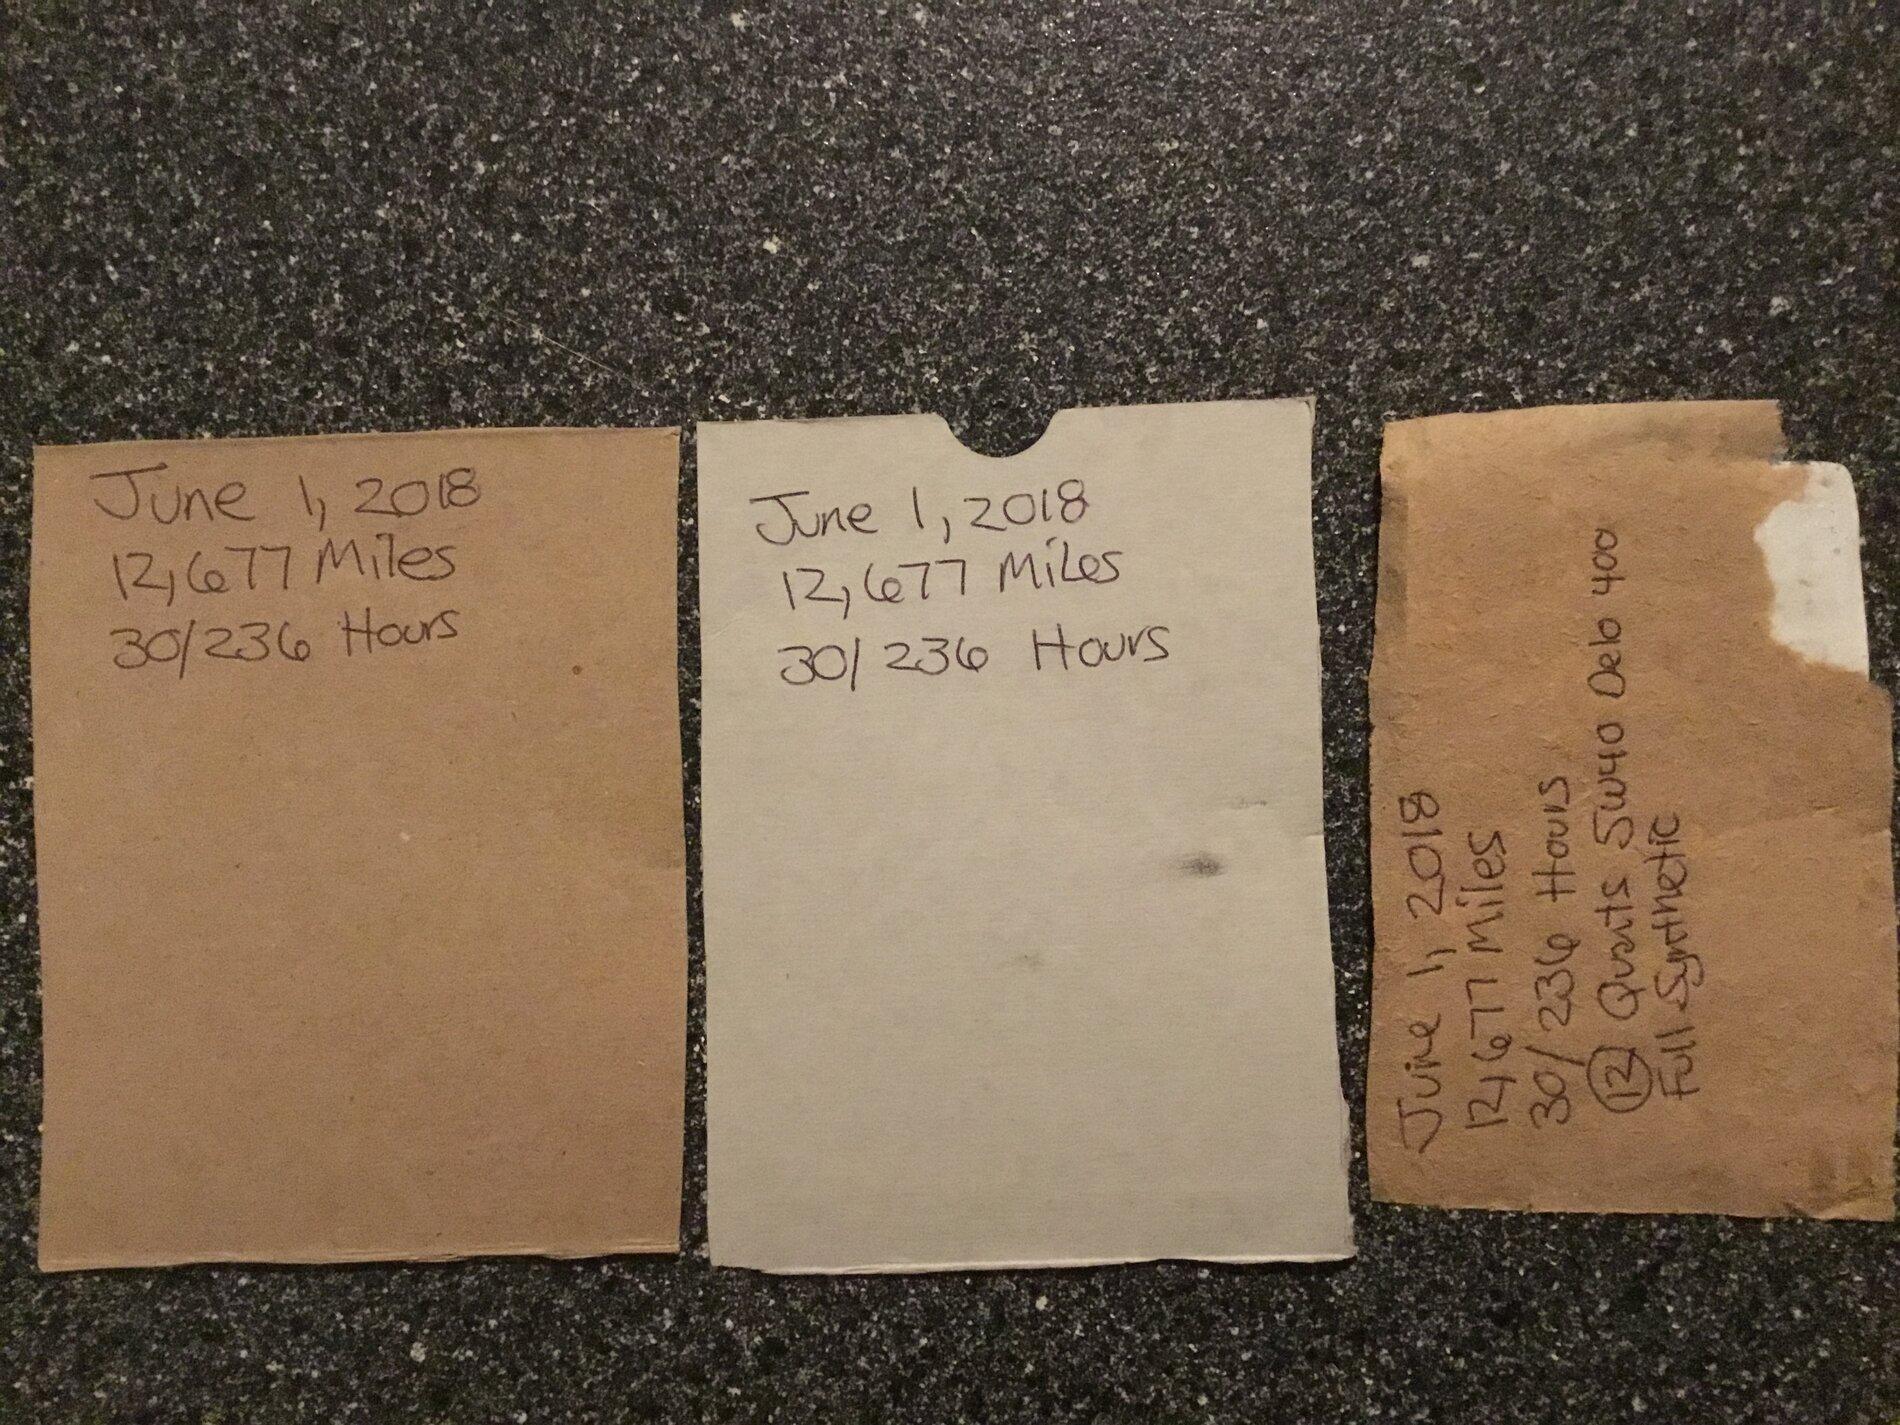 June 1, 2018
12,677 Miles
30/236 Hours
June 1, 2018
12,677 Miles
30/236 Hours
June 1, 2018
12,677 Miles
30/236 Hours
12 Quarts 5W40 Delo 400
Full Synthetic